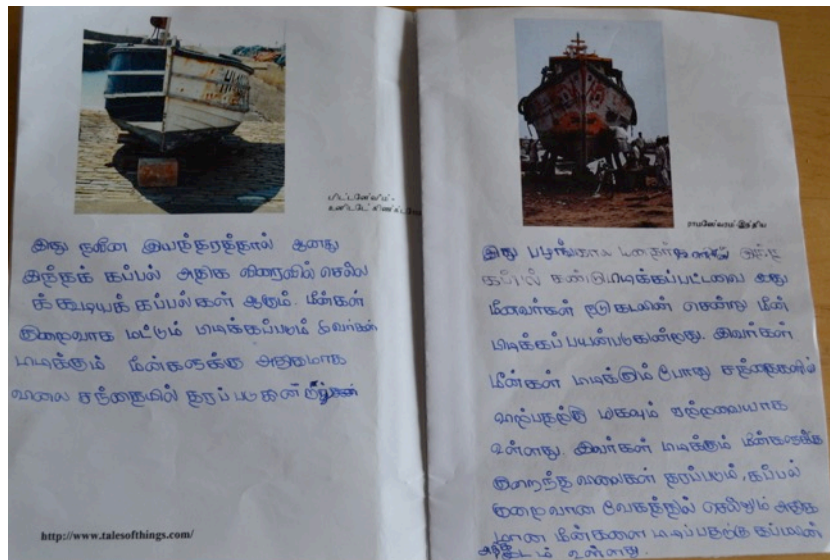 பிட்டன்வீம்-
இது நவீன இயந்தரத்தால் ஆனது
இந்தக் கப்பல் அதிக விரைவில் செல்ல
க் கூடியக் கப்பல்கள் ஆகும். மீன்கள்
குறைவாக மட்டும் பிடிக்கப்படும் இவர்கள்
பிடிக்கும் மீன்களுக்கு அதிகமாக
விலை சந்தையில் தரப் படுகின்
http://www.talesofthings.com/
ராமனேஸ்வரம் இந்திய
இது பழங்கால
கப்பல் கண்டுபிடிக்கப்பட்டவை இது
மீனவர்கள் நடு கடலின் சென்று மீன்
பிடிக்கப் பயன்படுகின்றது. இவர்கள்
மீன்கள் பிடிக்கும் போது சந்தைகளில்
விற்பதற்கு மிகவும் ஏற்றவையாக
உள்ளது. இவர்கள் பிடிக்கும் மீன்களுக்கு
குறைந்த விலைகள் தரப்படும், கப்பல்
குறைவான வேகத்தில் செல்லும் அதிக
மான மீன்களை பிடிப்பதற்கு கப்பலின்
உள்ளது.